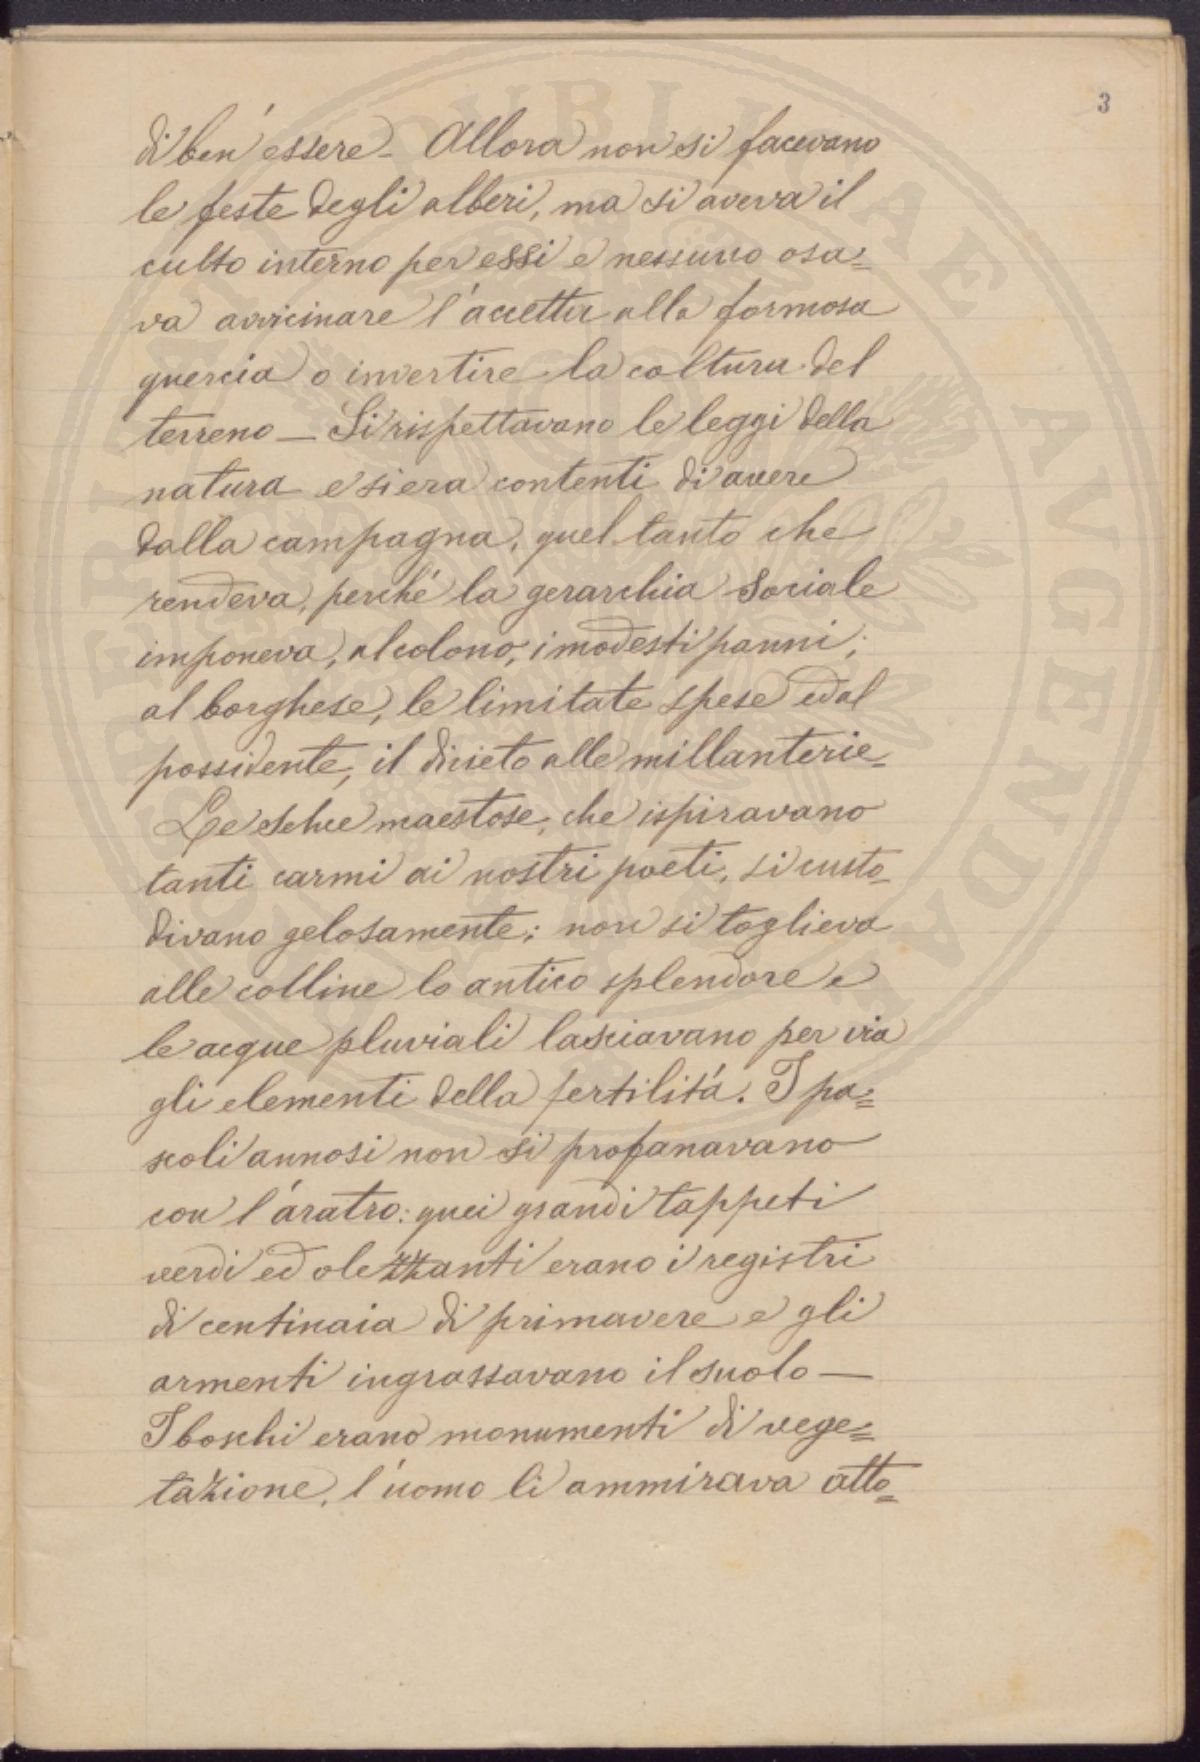 3
di ben'essere – Allora non si facevano
le feste degli alberi, ma si aveva il
culto interno per essi e nessuno osa=
va avvicinare l'accetta alla formosa
quercia o invertire la coltura del
terreno — Si rispettavano le leggi della
natura e si era contenti di avere
dalla campagna, quel tanto che
rendeva, perché la gerarchia sociale
imponeva, al colono, i modesti panni;
al borghese, le limitate spese ed al
possidente, il divieto alle millanterie –
Le selve maestose, che ispiravano
tanti carmi ai nostri poeti, si custo=
divano gelosamente; non si toglieva
alle colline lo antico splendore e
le acque pluviali lasciavano per via
gli elementi della fertilitá. I pa=
scoli annosi non si profanavano
con l'aratro: quei grandi tappeti
verdi ed olezzanti erano i registri
di centinaia di primavere e gli
armenti ingrassavano il suolo —
I boschi erano monumenti di vege=
tazione, l'uomo li ammirava atto=
PROSPERITATI PVBLICAE AVGENDAE